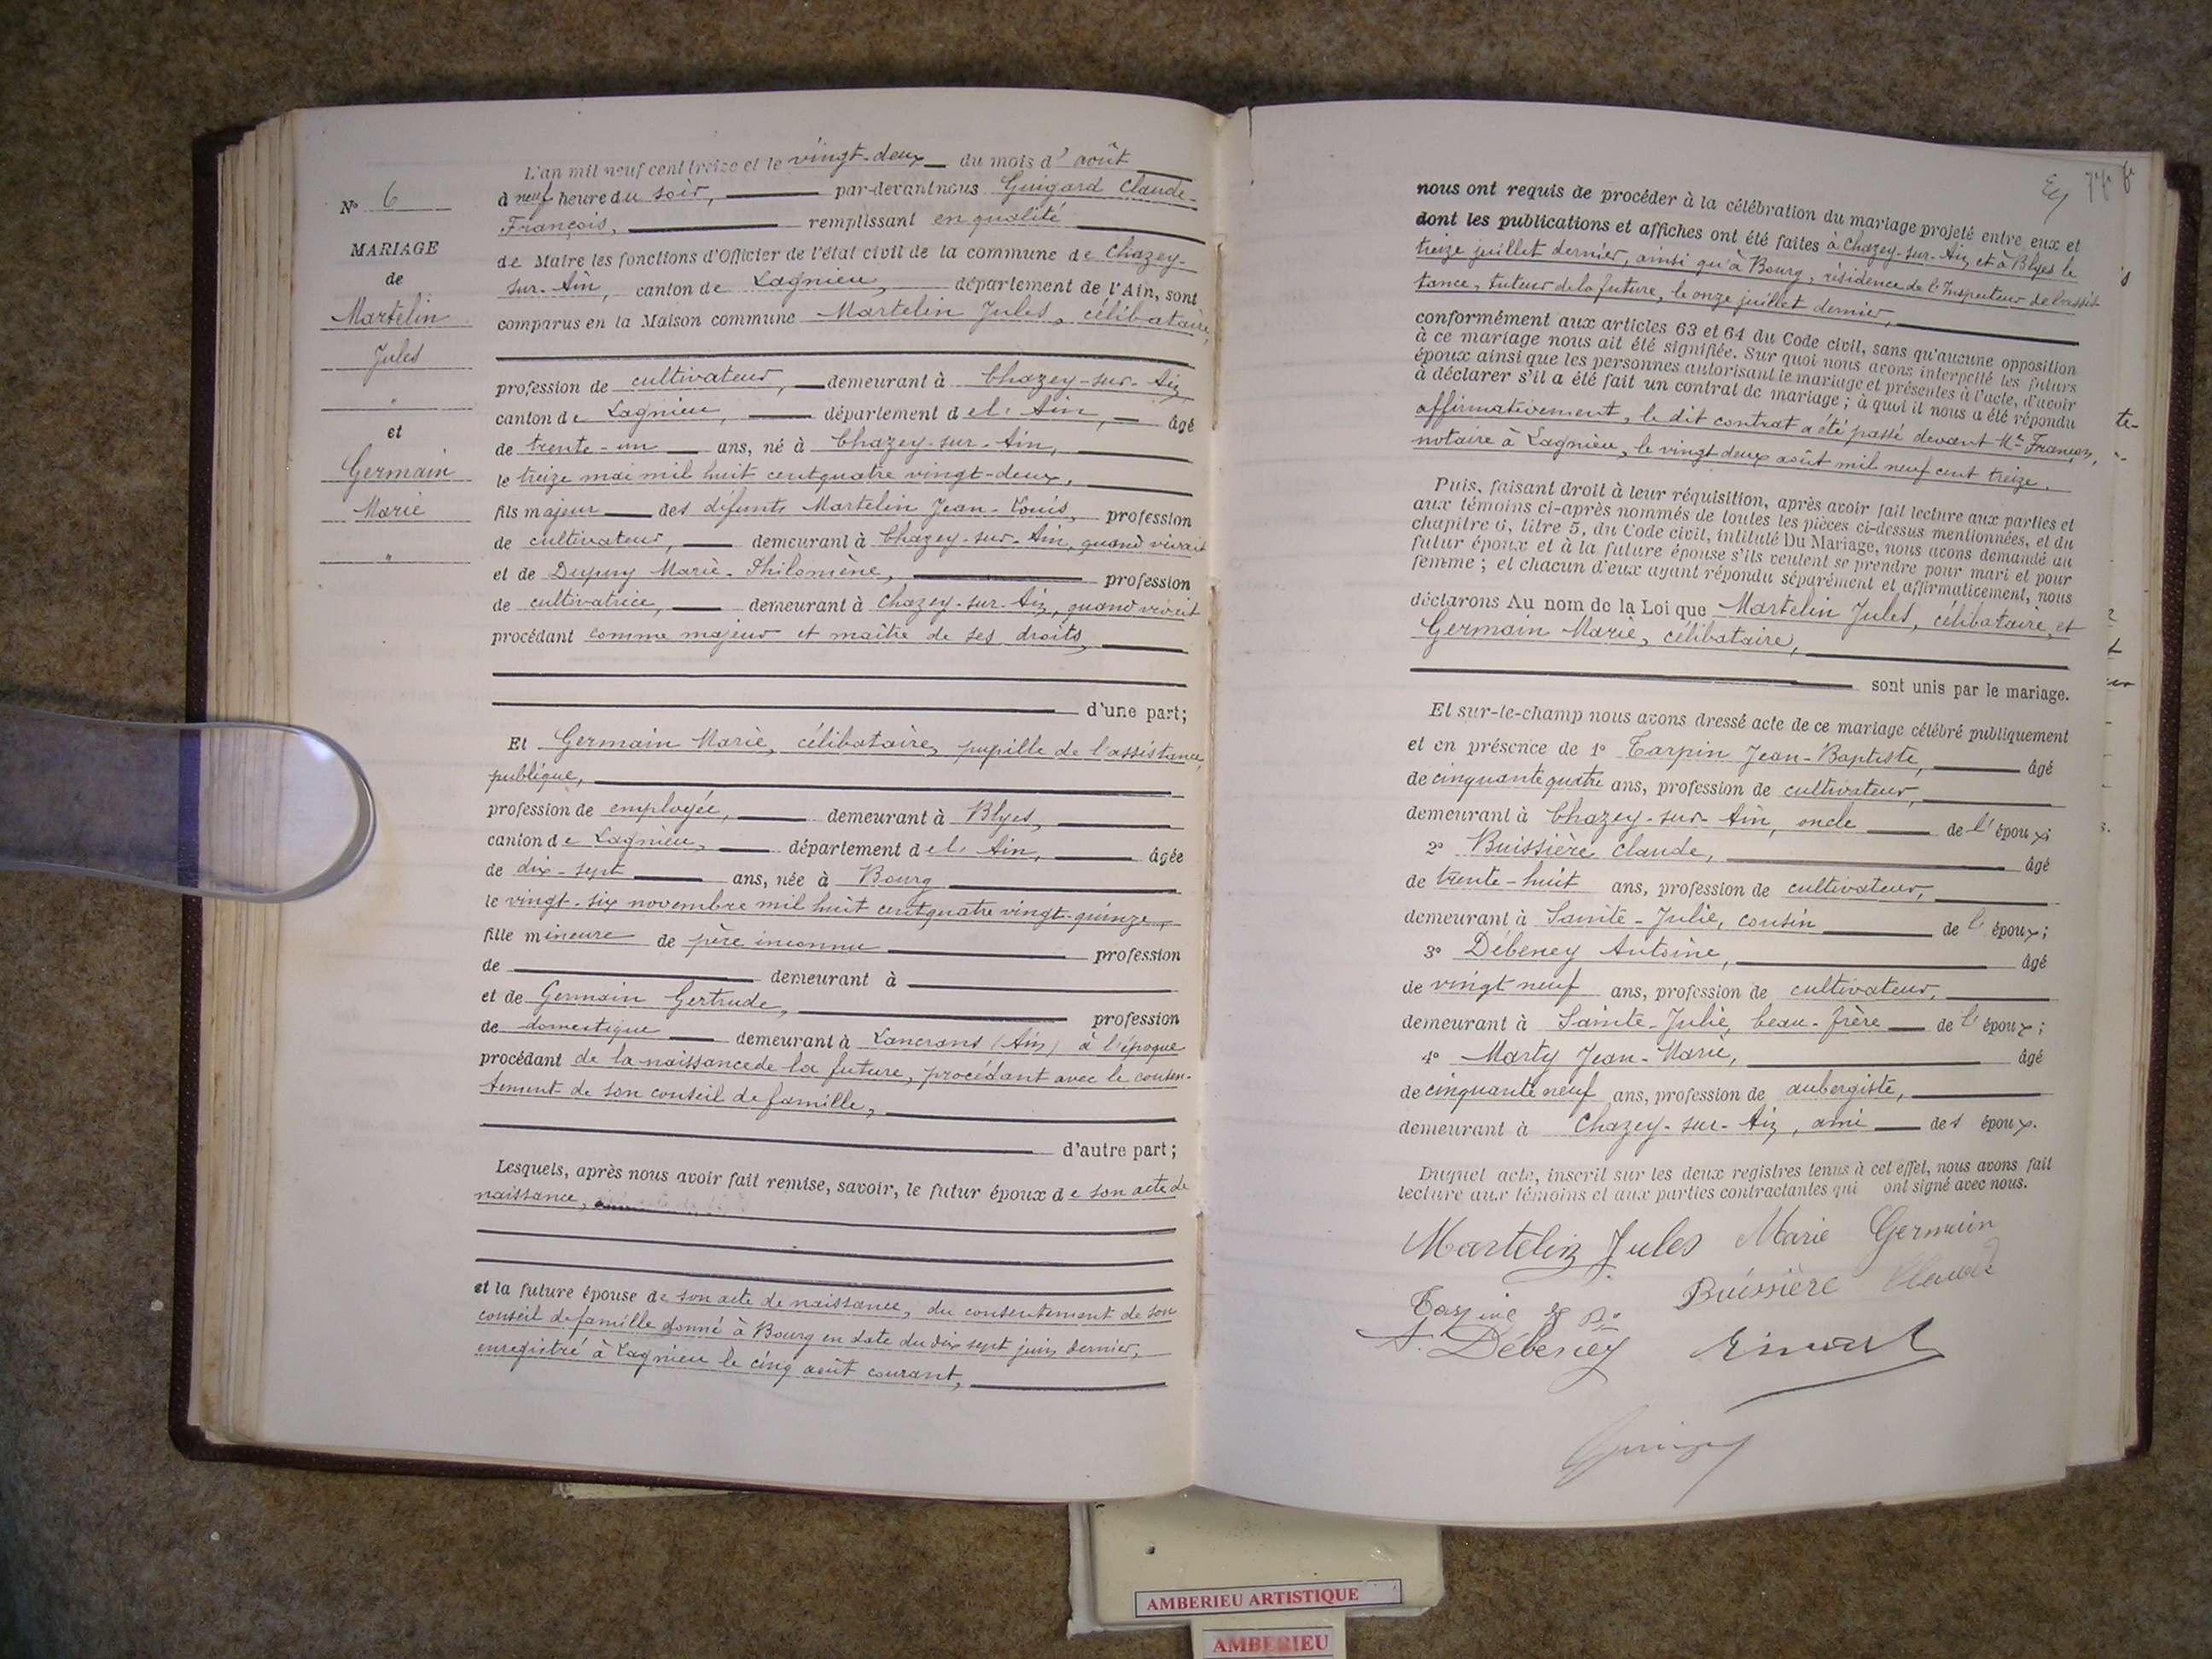 N° 6
MARIAGE
de
Martelin
Jules
"
et
Germain
Marie
"
L'an mil neuf cent treize et le vingt-deux du mois d' août
à neuf heure du soir, par-devant nous Guigard Claude-
François, remplissant en qualité
de Maire les fonctions d'Officier de l'état civil de la commune de Chazey-
sur-Ain, canton de Lagnieu, département de l'Ain, sont
comparus en la Maison commune Martelin Jules, célibataire,
profession de cultivateur, demeurant à Chazey-sur-Ain,
canton de Lagnieu, département de l' Ain, âgé
de trente-un ans, né à Chazey-sur-Ain,
le treize mai mil huit cent quatre vingt-deux,
fils majeur des défunts Martelin Jean-Louis, profession
de cultivateur, demeurant à Chazey-sur-Ain, quand vivait
et de Dupuy Marie-Philomène, profession
de cultivatrice, demeurant à Chazey-sur-Ain, quand vivait
procédant comme majeur et maître de ses droits,
d'une part;
Et Germain Marie, célibataire, pupille de l'assistance
publique,
profession de employée, demeurant à Blyes,
canton de Lagnieu, département de l' Ain, âgée
de dix-sept ans, née à Bourg
le vingt-six novembre mil huit cent quatre vingt-quinze,
fille mineure de père inconnu profession
de demeurant à
et de Germain Gertrude, profession
de domestique demeurant à Lancrans (Ain) à l'époque
procédant de la naissance de la future, procédant avec le consen-
tement de son conseil de famille,
d'autre part;
Lesquels, après nous avoir fait remise, savoir, le futur époux de son acte de
naissance,
et la future épouse de son acte de naissance, du consentement de son
conseil de famille donné à Bourg en date du dix sept juin dernier,
enregistré à Lagnieu le cinq août courant,
nous ont requis de procéder à la célébration du mariage projeté entre eux et
dont les publications et affiches ont été faites à Chazey-sur-Ain, et à Blyes le
treize juillet dernier, ainsi qu'à Bourg, résidence de l'Inspecteur de l'assis-
tance, tuteur de la future, le onze juillet dernier,
conformément aux articles 63 et 64 du Code civil, sans qu'aucune opposition
à ce mariage nous ait été signifiée. Sur quoi nous avons interpellé les futurs
époux ainsi que les personnes autorisant le mariage et présentes à l'acte, d'avoir
à déclarer s'il a été fait un contrat de mariage; à quoi il nous a été répondu
affirmativement, le dit contrat a été passé devant Me Françon,
notaire à Lagnieu, le vingt deux août mil neuf cent treize.
Puis, faisant droit à leur réquisition, après avoir fait lecture aux parties et
aux témoins ci-après nommés de toutes les pièces ci-dessus mentionnées, et du
chapitre 6, titre 5, du Code civil, intitulé Du Mariage, nous avons demandé au
futur époux et à la future épouse s'ils veulent se prendre pour mari et pour
femme; et chacun d'eux ayant répondu séparément et affirmativement, nous
déclarons Au nom de la Loi que Martelin Jules, célibataire, et
Germain Marie, célibataire,
sont unis par le mariage.
Et sur-le-champ nous avons dressé acte de ce mariage célébré publiquement
et en présence de 1° Tarpin Jean-Baptiste, âgé
de cinquante quatre ans, profession de cultivateur,
demeurant à Chazey-sur-Ain, oncle de l' époux;
2° Buissière Claude, âgé
de trente-huit ans, profession de cultivateur,
demeurant à Sainte-Julie, cousin de l' époux;
3° Débeney Antoine, âgé
de vingt neuf ans, profession de cultivateur,
demeurant à Sainte-Julie, beau-frère de l' époux;
4° Marty Jean-Marie, âgé
de cinquante neuf ans, profession de aubergiste,
demeurant à Chazey-sur-Ain, ami des époux.
Duquel acte, inscrit sur les deux registres tenus à cet effet, nous avons fait
lecture aux témoins et aux parties contractantes qui ont signé avec nous.
Martelin Jules Marie Germain
Buissière Claude
A. Débeney
AMBERIEU ARTISTIQUE
AMBERIEU